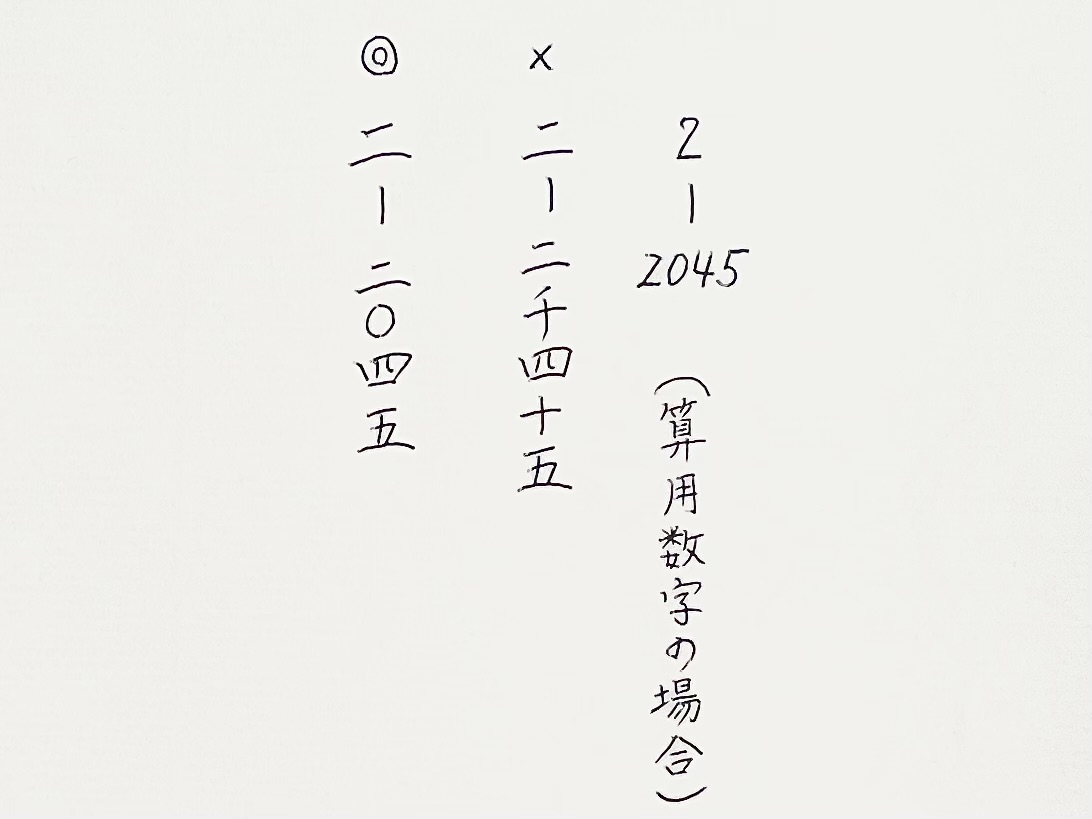 2ー2045 (算用数字の場合)
× 二ー二千四十五
◎ 二ー二〇四五